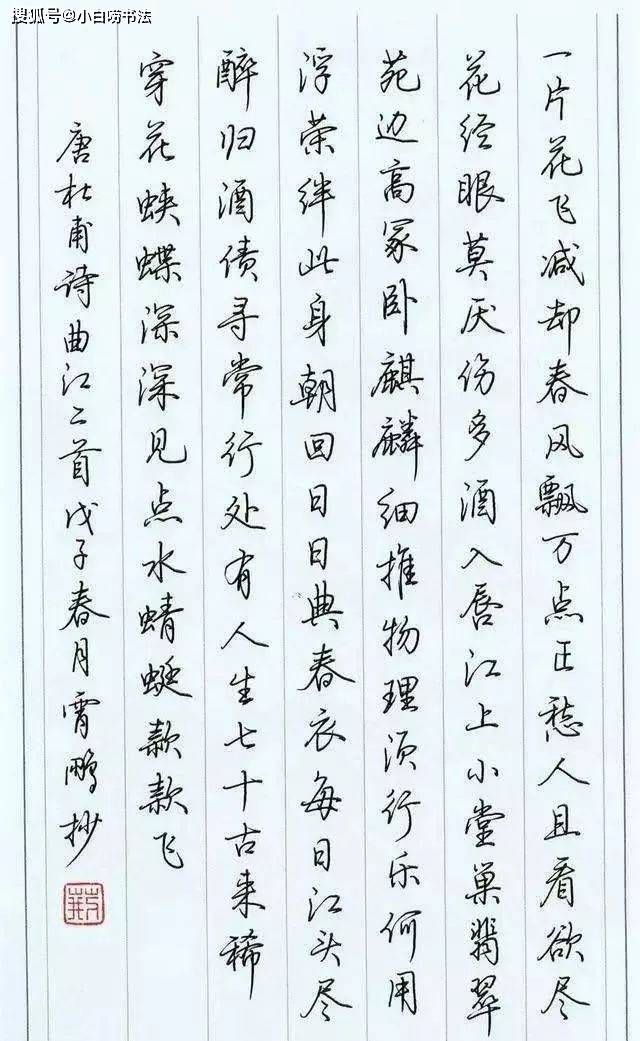 搜狐号@小白唠书法
一片花飞减却春风飘万点正愁人且看欲尽
花经眼莫厌伤多酒入唇江上小堂巢翡翠
苑边高冢卧麒麟细推物理须行乐何用
浮荣绊此身朝回日日典春衣每日江头尽
醉归酒债寻常行处有人生七十古来稀
穿花蛱蝶深深见点水蜻蜓款款飞
唐杜甫诗曲江二首戊子春月霄鹏抄